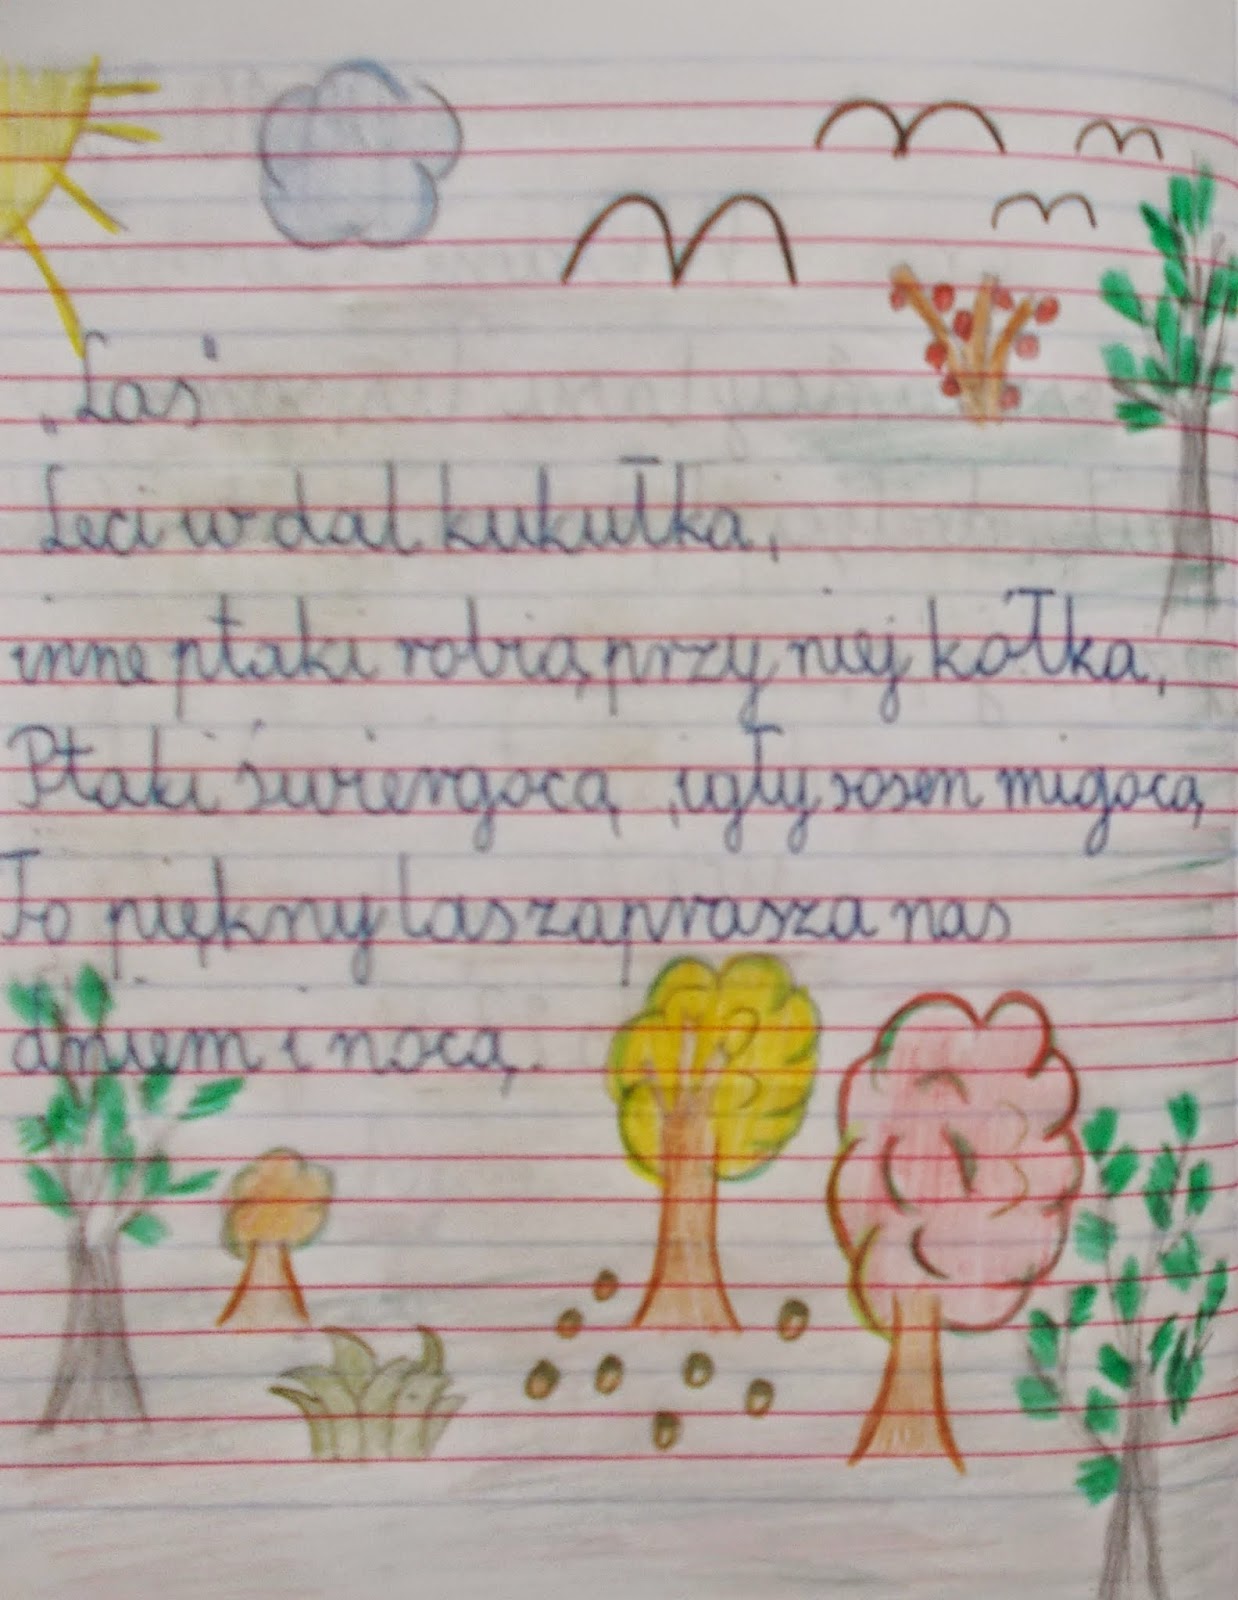 „Las”
Leci w dal kukułka,
inne ptaki robią przy niej kółka,
Ptaki świergocą, igły sosen migocą
To piękny las zaprasza nas
dniem i nocą.